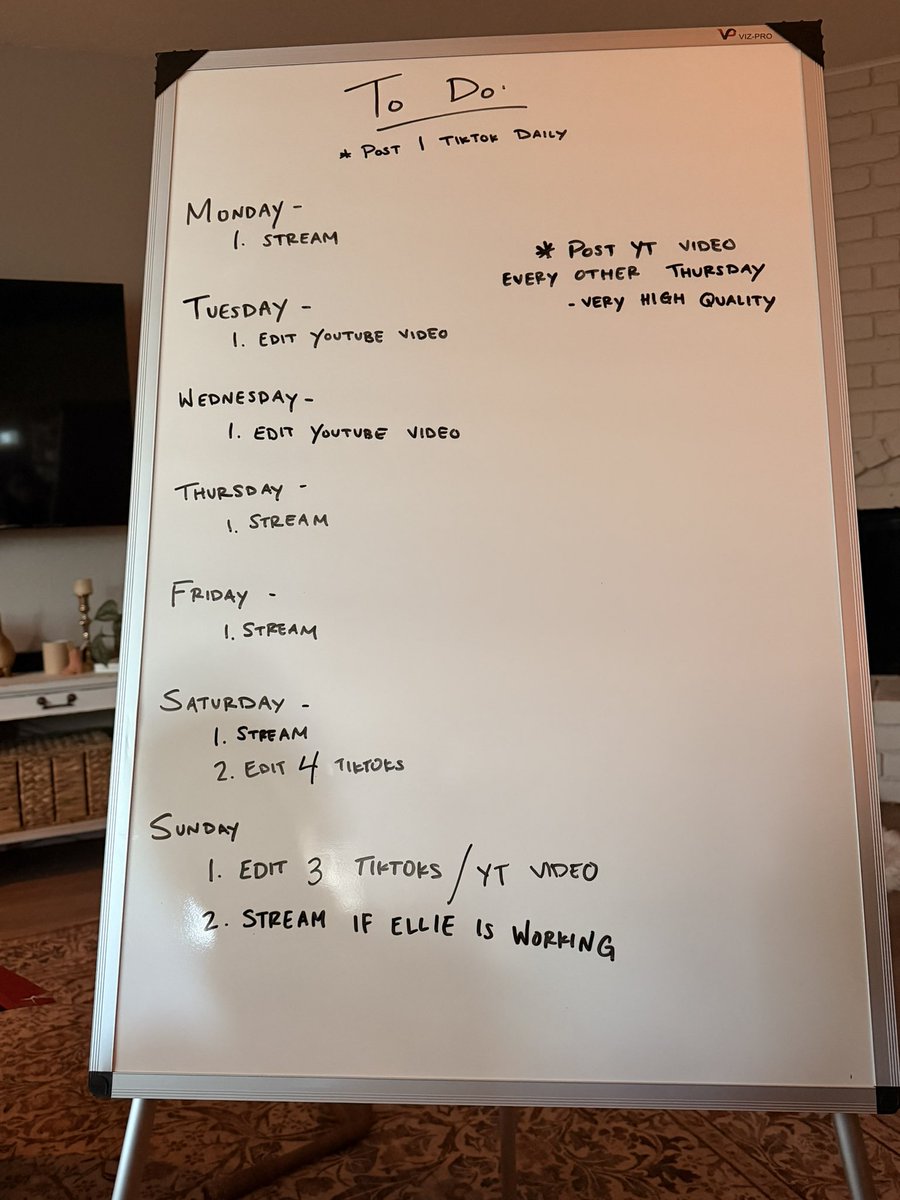 VP VIZ-PRO
To Do:
* POST 1 TIKTOK DAILY
MONDAY -
1. STREAM
* POST YT VIDEO
EVERY OTHER THURSDAY
- VERY HIGH QUALITY
TUESDAY -
1. EDIT YOUTUBE VIDEO
WEDNESDAY -
1. EDIT YOUTUBE VIDEO
THURSDAY -
1. STREAM
FRIDAY -
1. STREAM
SATURDAY -
1. STREAM
2. EDIT 4 TIKTOKS
SUNDAY
1. EDIT 3 TIKTOKS / YT VIDEO
2. STREAM IF ELLIE IS WORKING